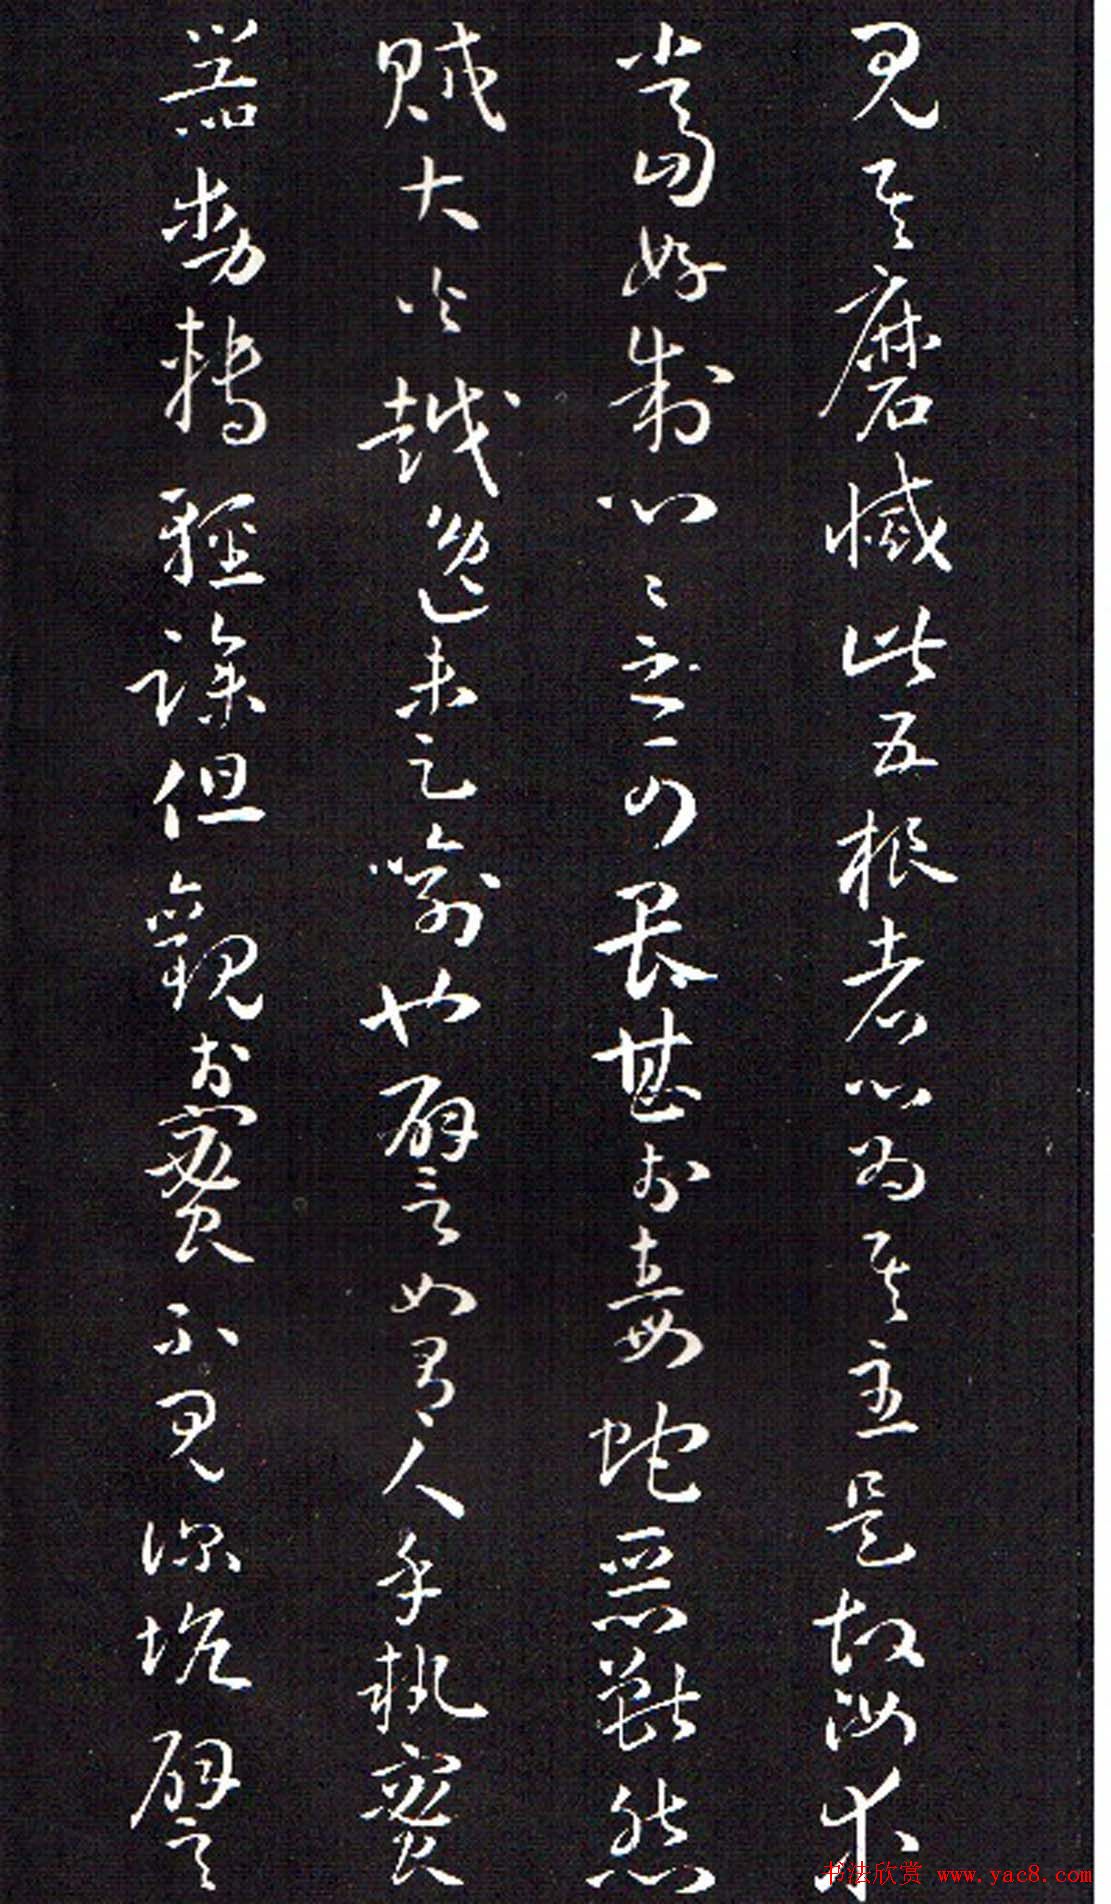 見其磨滅此五根者心為其主是故汝等
當好制心〻之可畏甚於毒蛇惡獸怨
賊大火越逸未足喻也譬如有人手執蜜
器動轉輕躁但觀於蜜不見深坑譬
书法欣赏 www.yac8.com